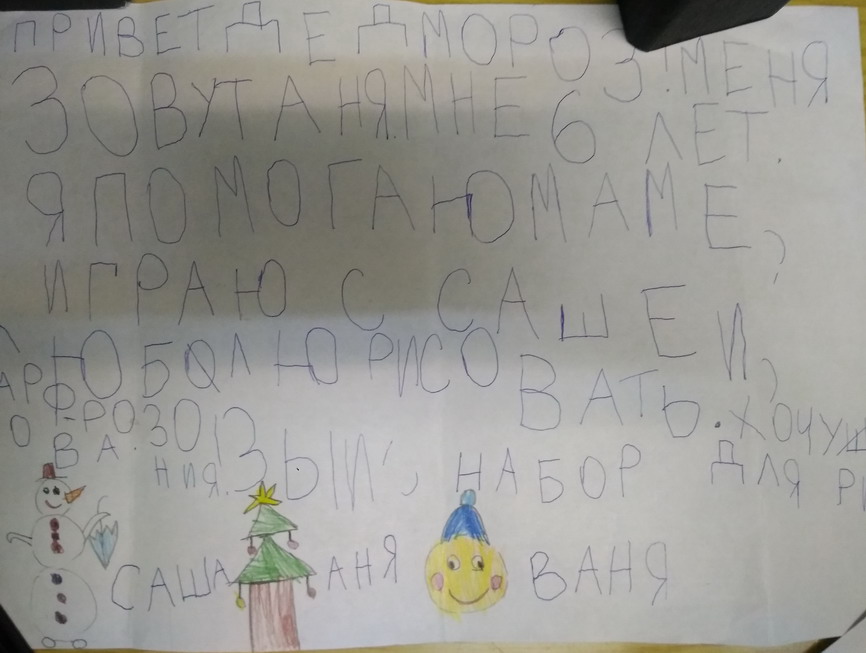 ПРИВЕТ ДЕД МОРОЗ! МЕНЯ
ЗОВУТ АНЯ. МНЕ 6 ЛЕТ.
Я ПОМОГАЮ МАМЕ,
ИГРАЮ С САШЕЙ,
ЛЮБЛЮ РИСОВАТЬ. ХОЧУ
РОЗОВЫЙ, НАБОР ДЛЯ РИ
ВА
НИЯ.
САША АНЯ ВАНЯ